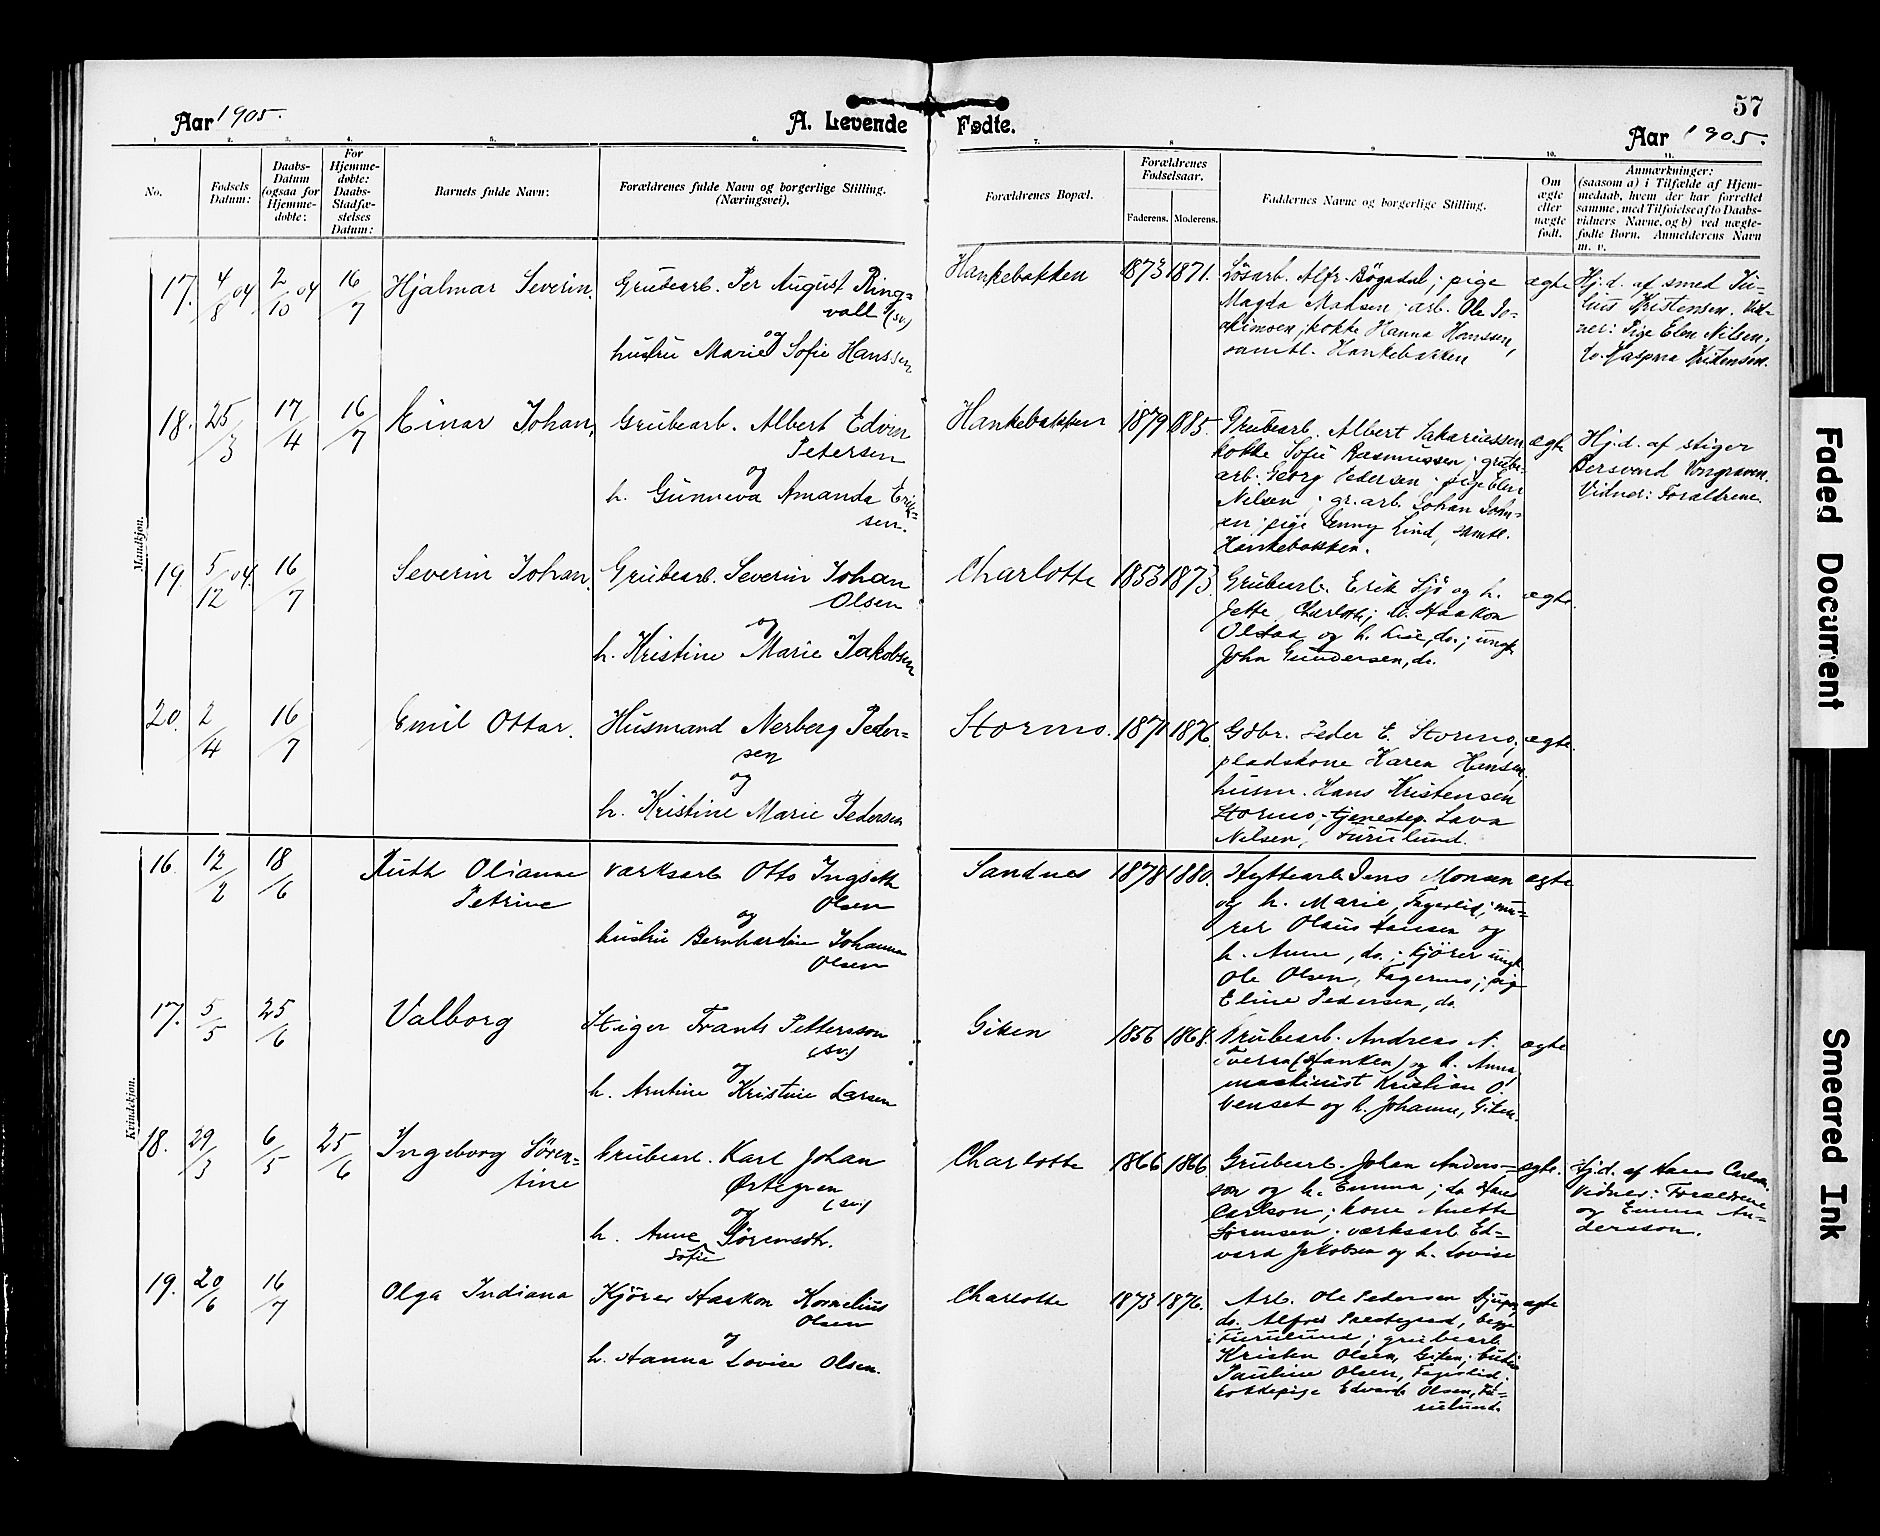 57
Aar 1905.
A. Levende Fødte.
Aar 1905.
1. 2. 3. 4. 5. 6. 7. 8. 9. 10. 11.
No.
Fødsels Datum:
Daabs-
Datum
(ogsaa for
Hjemme-
døbte:
For
Hjemme-
døbte:
Daabs-
Stadfæ-
stelses
Datum:
Barnets fulde Navn:
Forældrenes fulde Navn og borgerlige Stilling.
(Næringsvei).
Forældrenes Bopæl.
Forældrenes
Fødselsaar.
Faderens. Moderens.
Faddernes Navne og borgerlige Stilling.
Om
ægte
eller
uægte
født.
Anmærkninger:
(saasom a) i Tilfælde af Hjem-
medaab, hvem der har forrettet
samme, med Tilføielse af to Daabs-
vidners Navne, og b) ved uægte-
fødte Børn, Anmelderens Navn
m. v.
Mandkjøn.
17. 4/8 04 2/10 04 16/7 Hjalmar Severin.
Grubearb. Per August Ring-
vall (sv.)
og
hustru Marie Sofie Hanssen
Hankebakken 1873 1871.
Løsarb. Alfr. Bøgadal; pige
Magda Madsen; arb. Ole Jo-
akimsen; kokke Hanna Hanssen,
samtl. Hankebakken
ægte
Hj.d. af smed Ju-
lius Kristensen. Vid-
ner: Pige Elen Nilsen,
Kristensen.
18. 25/3 17/4 16/7 Einar Johan.
Grubearb. Albert Edvin
Petersen
og
h. Gunneva Amanda Erik-
sen.
Hankebakken 1879 1885.
Grubearb. Albert Sakariassen
kokke Sofie Rasmussen; grube-
arb. Georg Pedersen; pige Elen
Nilsen; gr.arb. Johan
pige Jenny Lind, samtl.
Hankebakken.
ægte
Hj.d. af stiger
Bersvend Vongraven.
Vidner: Forældrene.
19 5/12 04. 16/7 Severin Johan.
Grubearb. Severin Johan
Olsen
og
h. Kristine Marie Jakobsen
Charlotte 1853 1873.
Grubearb. Erik Sjö og h.
Jette, Charlotte; do. Haakon
Olstad og h. Lise, do.; ungk.
John Gundersen, do.
ægte.
20. 2/4 16/7 Emil Ottar.
Husmand Nerberg Peder-
sen
og
h. Kristine Marie Pedersen
Stormo. 1871 1876.
Gdbr. Peder E. Stormo,
pladskone Karen Hansen,
husm. Hans Kristensen
Stormo; tjenestep. Lava
Nilsen, Furulund.
ægte.
Kvindekjøn.
16. 12/2 18/6 Ruth Olianne
Petrine
Værksarb Otto Ingseth
Olsen
og
hustru Bernhardine Johanna
Olsen
Sandnes 1878 1880.
Hyttearb Jens Monsen
og h. Marie, Fagerlid; mu-
rer Olaus Hansen og
h. Anne, do.; kjører ungk.
Ole Olsen, Fagermo; pige
Eline Pedersen, do.
ægte
17. 5/5 25/6 Valborg
Stiger Frants Pettersson
(sv.)
og
h. Arntine Kristine Larsen
Giken 1856 1868.
Grubearb. Andreas N.
Tveraa (Hanken) og h. Anna;
maskinist Kristian
og h. Johanne, Giken.
ægte
18. 29/3 6/5 25/6 Ingeborg Sören-
tine
Grubearb. Karl Johan
Ørtegren
(sv.)
og
h. Anne Sofie Sørensdtr.
Charlotte 1866 1866
Grubearb. Johan Anders-
son og h. Emma; do Hans
Carlson; kone Anette
Sørensen; værksarb Ed-
vard Jakobsen og h. Lovise
ægte.
Hj.d. af Hans Carlson.
Vidner: Forældrene
og Emma An-
dersson.
19. 20/6 16/7 Olga Indiana
Kjører Haakon Kornelius
Olsen
og
h. Hanna Lovise Olsen.
Charlotte 1873 1876.
Arb. Ole Pedersen
do. Alfred begge
i Furulund; grubearb
Kristen Olsen, Giken;
Pauline Olsen, Fagerlid.
kokkepige Edvarda Olsen, Fu-
rulund.
ægte
Faded Document
Smeared Ink